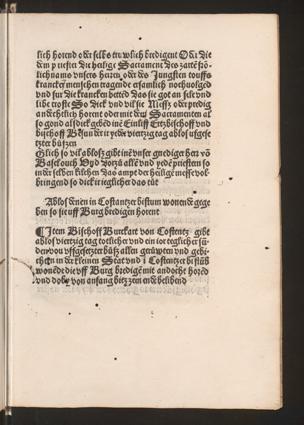 lich horend oder selbs truwlich bredigent Oder die
dem priester die heilige Sacrament des zarte frö
lichnams vnsers herren oder des Jungsten touffs
krancken menschen tragende ersamlich nochuolgend
vnd fur die krancken bettend das sie got an sele vnd
libe troste So dick vnd vil sie Messz oder predig
andechtelich horent oder mit den Sacramenten al
so gond als dick gebend ine Einliff Ertzbischoff vnd
bischoff Besunder it yeder viertzig tag ablos vfgesetz
ter buss
Glich so vil abloss gibt ine vnser gnediger herr vō
Basel ouch Vnd dorzu allen vnd yede priestern so
in der selben kilchen das ampt der heilige messe vol
bringend so dick it yeglicher das tut
Ablos denen in Costantzer bistum wonende gege
ben so sie vff Burg bredigen horent
Item Bischoff Burckart von Costentz gibt
ablos viertzig tag totlicher vnd ein ior teglicher sü
den von vffgesetzter buss allen geruwten vnd gebich
ten in der kleinen Stat vnd i Costentzer bistüb
wonēde die vff Burg bredige mit andocht horēd
vnd doby von anfang bitz zu ende belibend